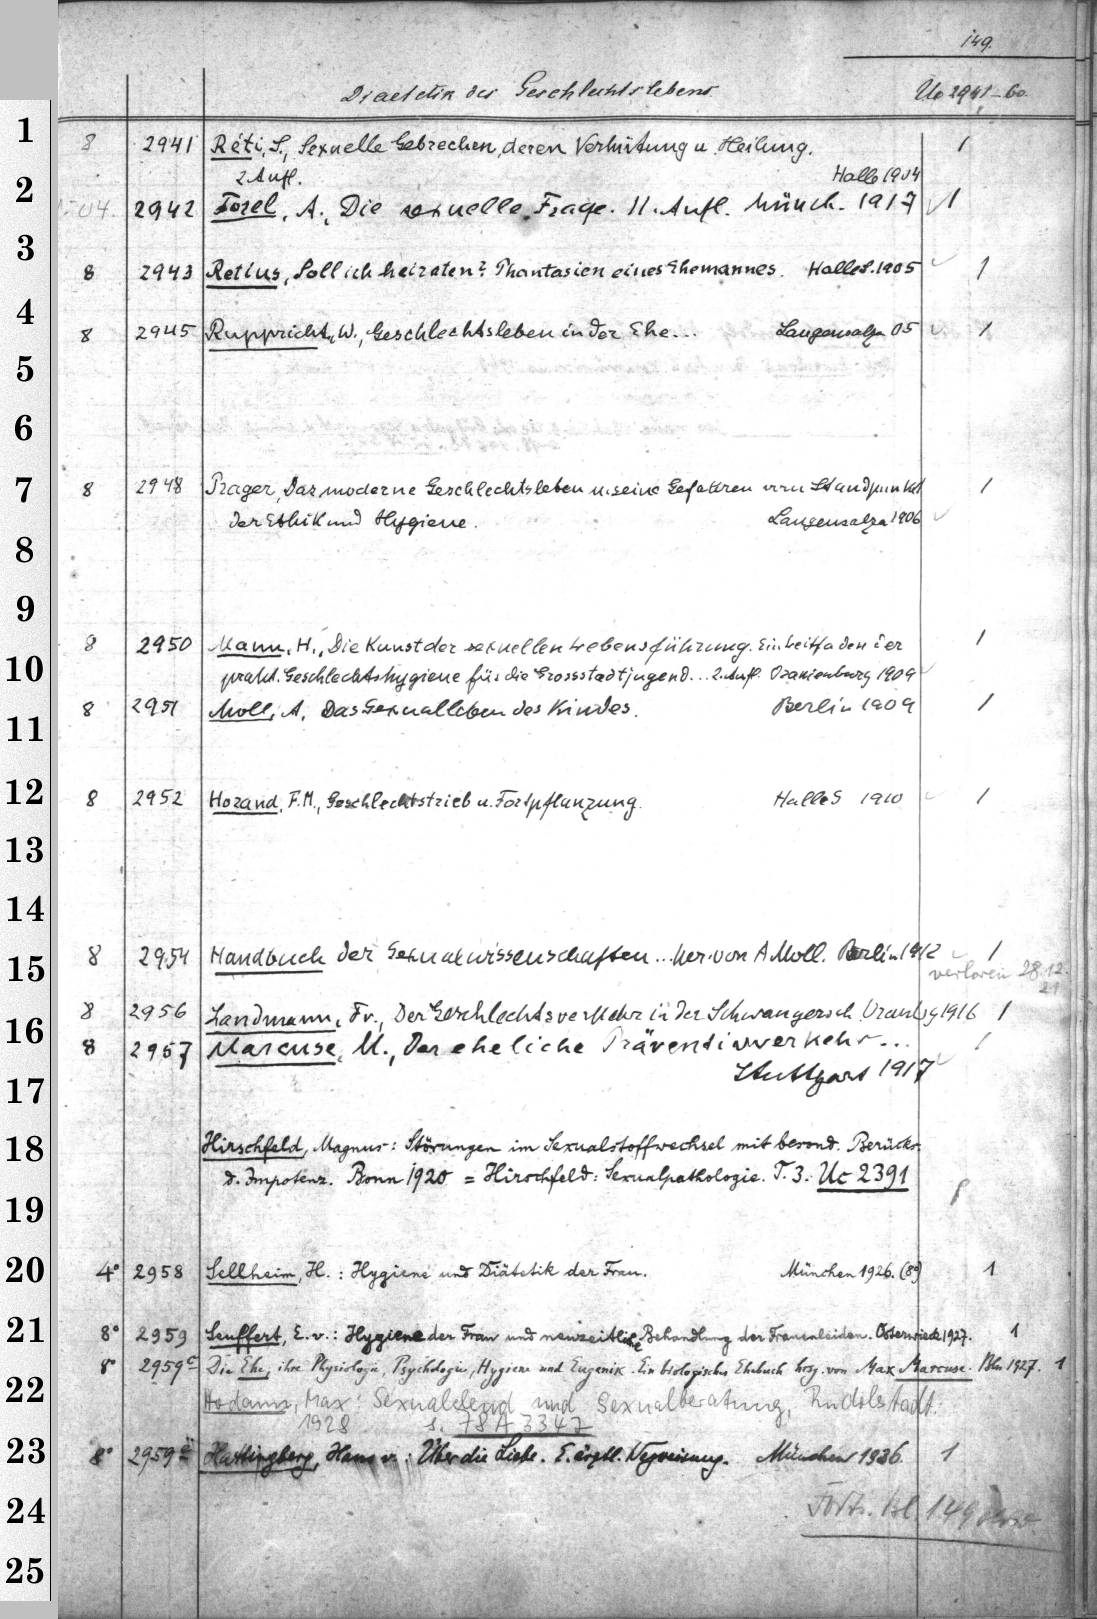 149.
Diaetetik des Geschlechtslebens Uo 2941-60
1
8 2941 Réti, S., Sexuelle Gebrechen, deren Verhütung u. Heilung. 1
2. Aufl. Halle 1904
2
04. 2942 Forel, A., Die sexuelle Frage. 11. Aufl. Münch. 1917 1
3
8 2943 Retius, Soll ich heiraten? Phantasien eines Ehemannes. Halle S. 1905 1
4
8 2945 Ruppricht, W., Geschlechtsleben in der Ehe... Langensalza 05 1
5
6
7
8 2948 Prager, Das moderne Geschlechtsleben u. seine Gefahren vom Standpunkt 1
der Ethik und Hygiene. Langensalza 1906
8
9
8 2950 Mann, H., Die Kunst der sexuellen Lebensführung. Ein Leitfaden der 1
10
prakt. Geschlechtshygiene für die Grossstadtjugend... 2. Aufl. Oranienburg 1909
8 2951 Moll, A. Das Sexualleben des Kindes. Berlin 1909 1
11
12
8 2952 Horand, F.M., Geschlechtstrieb u. Fortpflanzung. Halle S 1910 1
13
14
15
8 2954 Handbuch der Sexualwissenschaften... her. von A Moll. Berlin 1912 1
verloren 28.12.
21
8 2956 Landmann, Fr., Der Geschlechtsverkehr in der Schwangersch. Oranbg 1916 1
16
8 2957 Marcuse, M., Der eheliche Präventivverkehr... 1
Stuttgart 1917
17
18
Hirschfeld, Magnus: Störungen im Sexualstoffwechsel mit besond. Berücks.
d. Impotenz. Bonn 1920 = Hirschfeld: Sexualpathologie. T. 3. Uc 2391
19
20
4° 2958 Sellheim, H.: Hygiene und Diätetik der Frau. München 1926. (8°) 1
21
8° 2959 Seuffert, E. v.: Hygiene der Frau und neuzeitliche Behandlung der Frauenleiden. Osterwieck 1927. 1
8° 2959c Die Ehe, ihre Physiologie, Psychologie, Hygiene und Eugenik. Ein biologisches Ehebuch hrsg. von Max Marcuse. Bln 1927. 1
22
Hodann, Max: Sexualelend und Sexualberatung, Rudolstadt.
1928 s. 78 A 3347
23
8° 2959 Hattingberg, Hans v.: Über die Liebe. E. ärztl. Wegweisung. München 1936. 1
24
Forts. Bl. 149
25